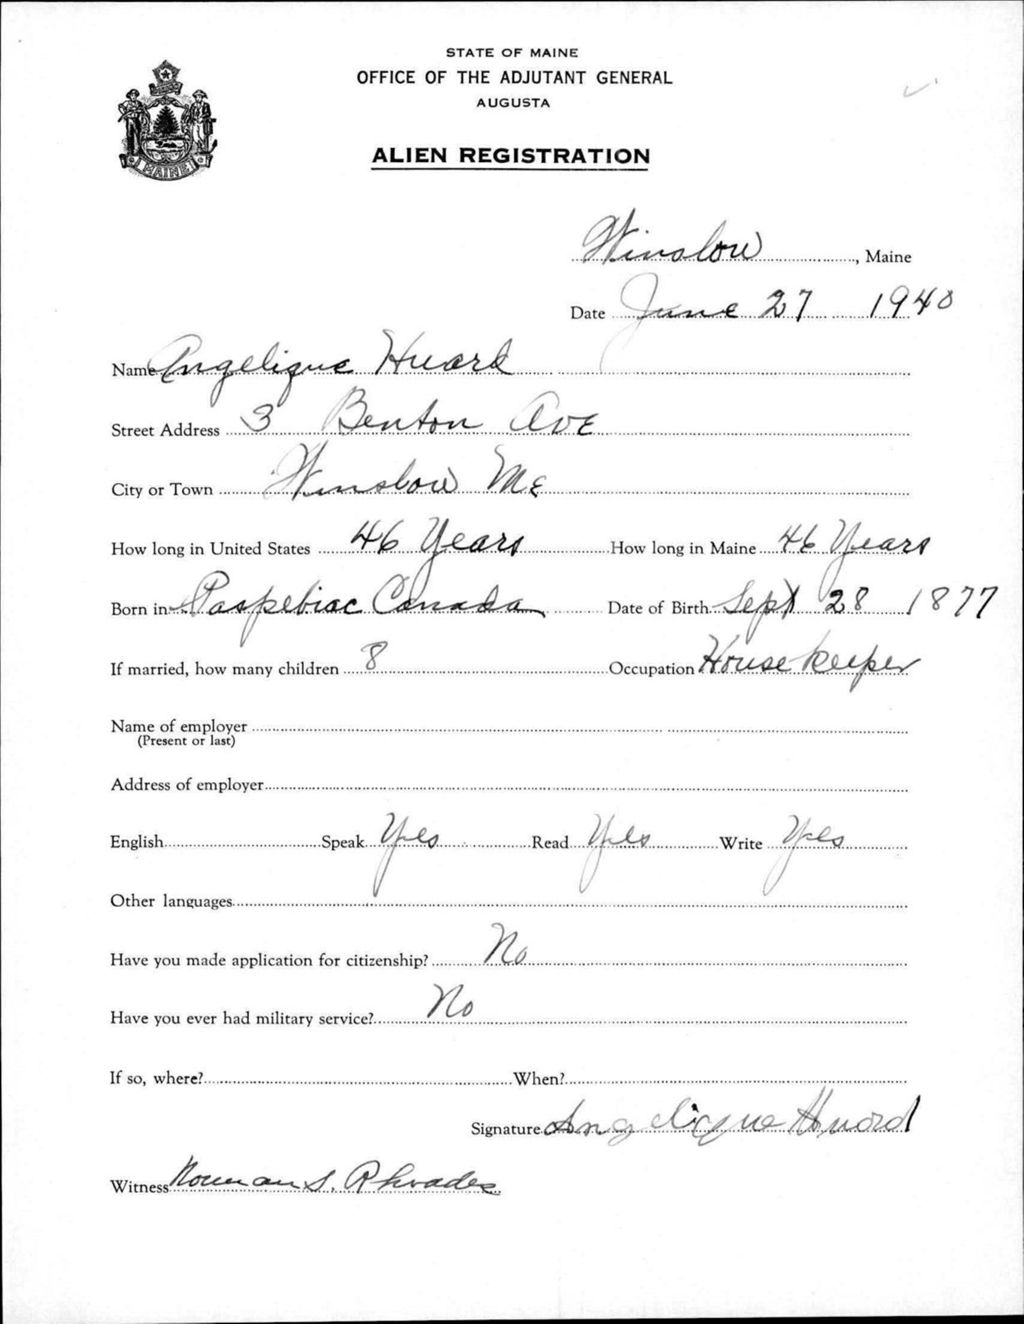 STATE OF MAINE
OFFICE OF THE ADJUTANT GENERAL
AUGUSTA
ALIEN REGISTRATION
MAINE
Winslow, Maine
Date June 27 1940
Name Angelique Huard
Street Address 3 Benton Ave
City or Town Winslow Me
How long in United States 46 Years How long in Maine 46 Years
Born in Paspebiac Canada Date of Birth Sept 28 1877
If married, how many children 8 Occupation House keeper
Name of employer
(Present or last)
Address of employer
English Speak Yes Read Yes Write Yes
Other languages
Have you made application for citizenship? No
Have you ever had military service? No
If so, where? When?
Signature Angelique Huard
Witness Norman S. Rhoades